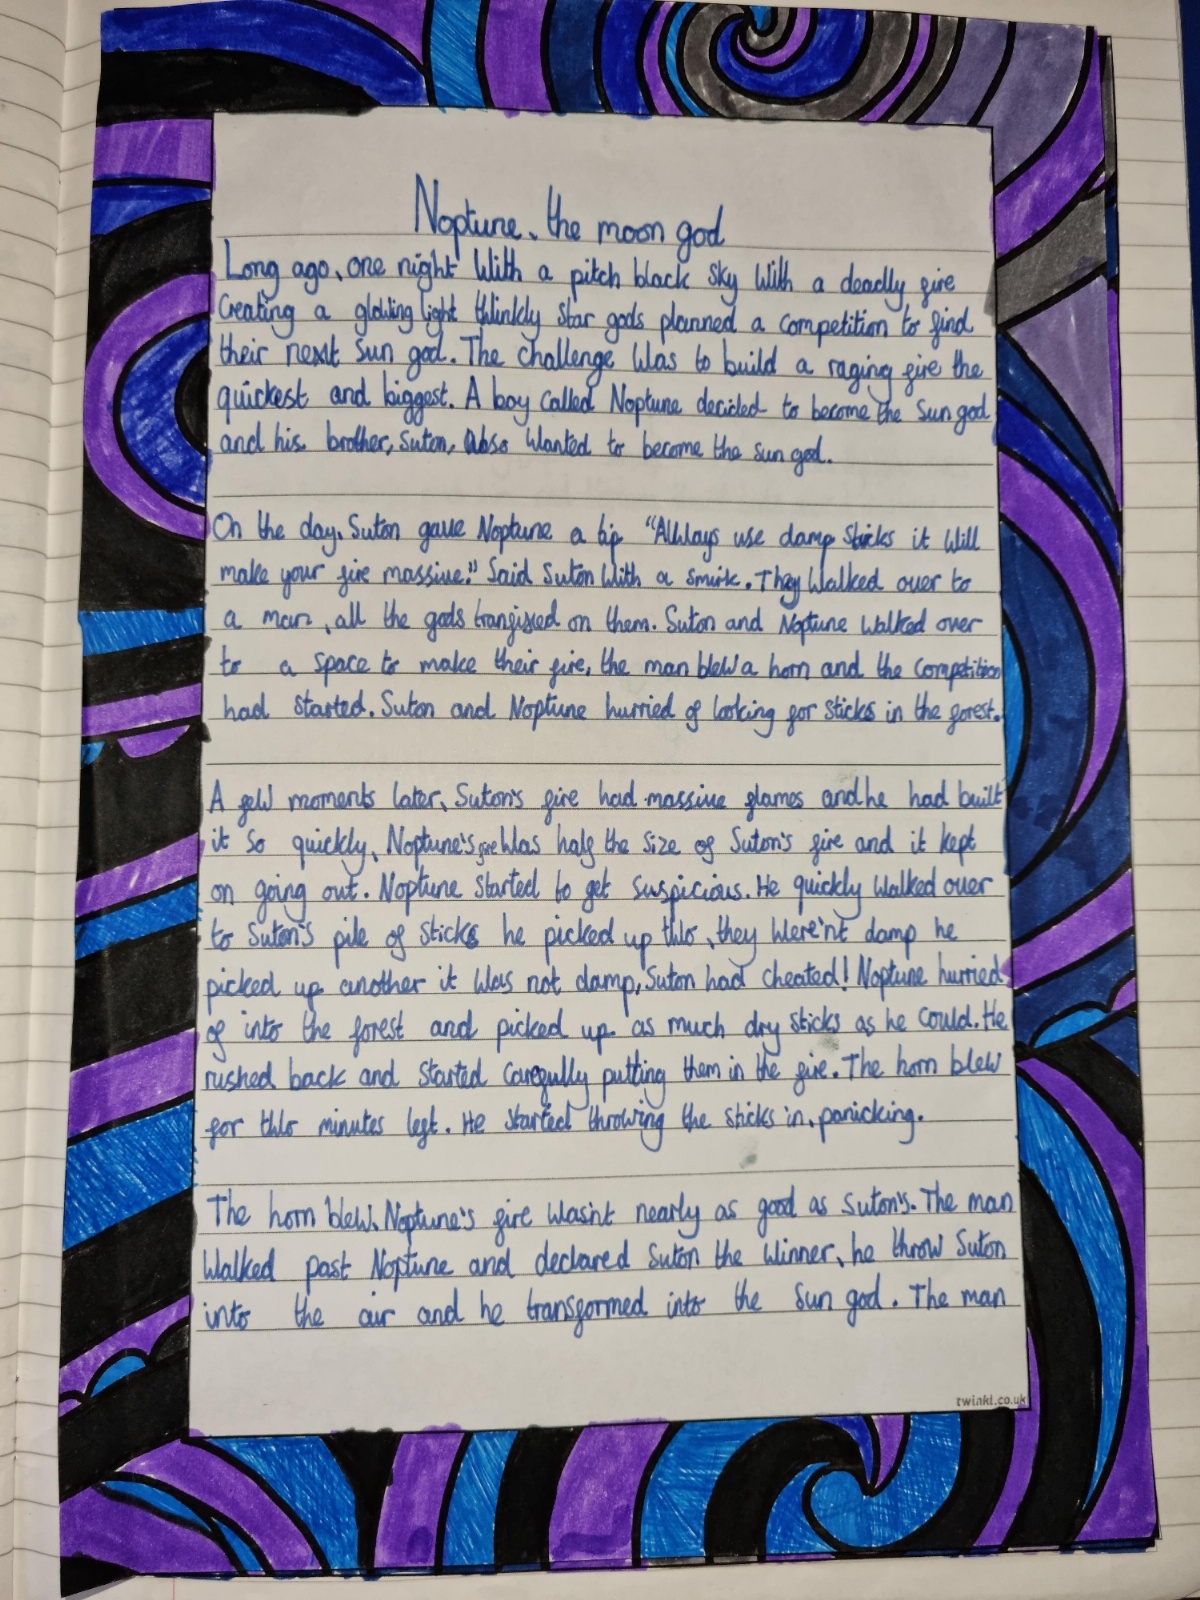 Neptune, the moon god
Long ago, one night with a pitch black sky with a deadly fire
creating a glowing light twinkly star gods planned a competition to find
their next sun god. The challenge was to build a raging fire the
quickest and biggest. A boy called Neptune decided to become the sun god
and his brother, Suton, also wanted to become the sun god.
On the day, Suton gave Neptune a tip "Always use damp sticks it will
make your fire massive." Said Suton with a smirk. They walked over to
a man, all the gods transfixed on them. Suton and Neptune walked over
to a space to make their fire, the man blew a horn and the competition
had started. Suton and Neptune hurried of looking for sticks in the forest.
A few moments later, Suton's fire had massive flames and he had built
it so quickly, Neptune's fire was half the size of Suton's fire and it kept
on going out. Neptune started to get suspicious. He quickly walked over
to Suton's pile of sticks he picked up two, they were'nt damp he
picked up another it was not damp, Suton had cheated! Neptune hurried
of into the forest and picked up as much dry sticks as he could. He
rushed back and started carefully putting them in the fire. The horn blew
for two minutes left. He started throwing the sticks in, panicking.
The horn blew, Neptune's fire wasn't nearly as good as Suton's. The man
walked past Neptune and declared Suton the winner, he throw Suton
into the air and he transformed into the sun god. The man
twinkl.co.uk